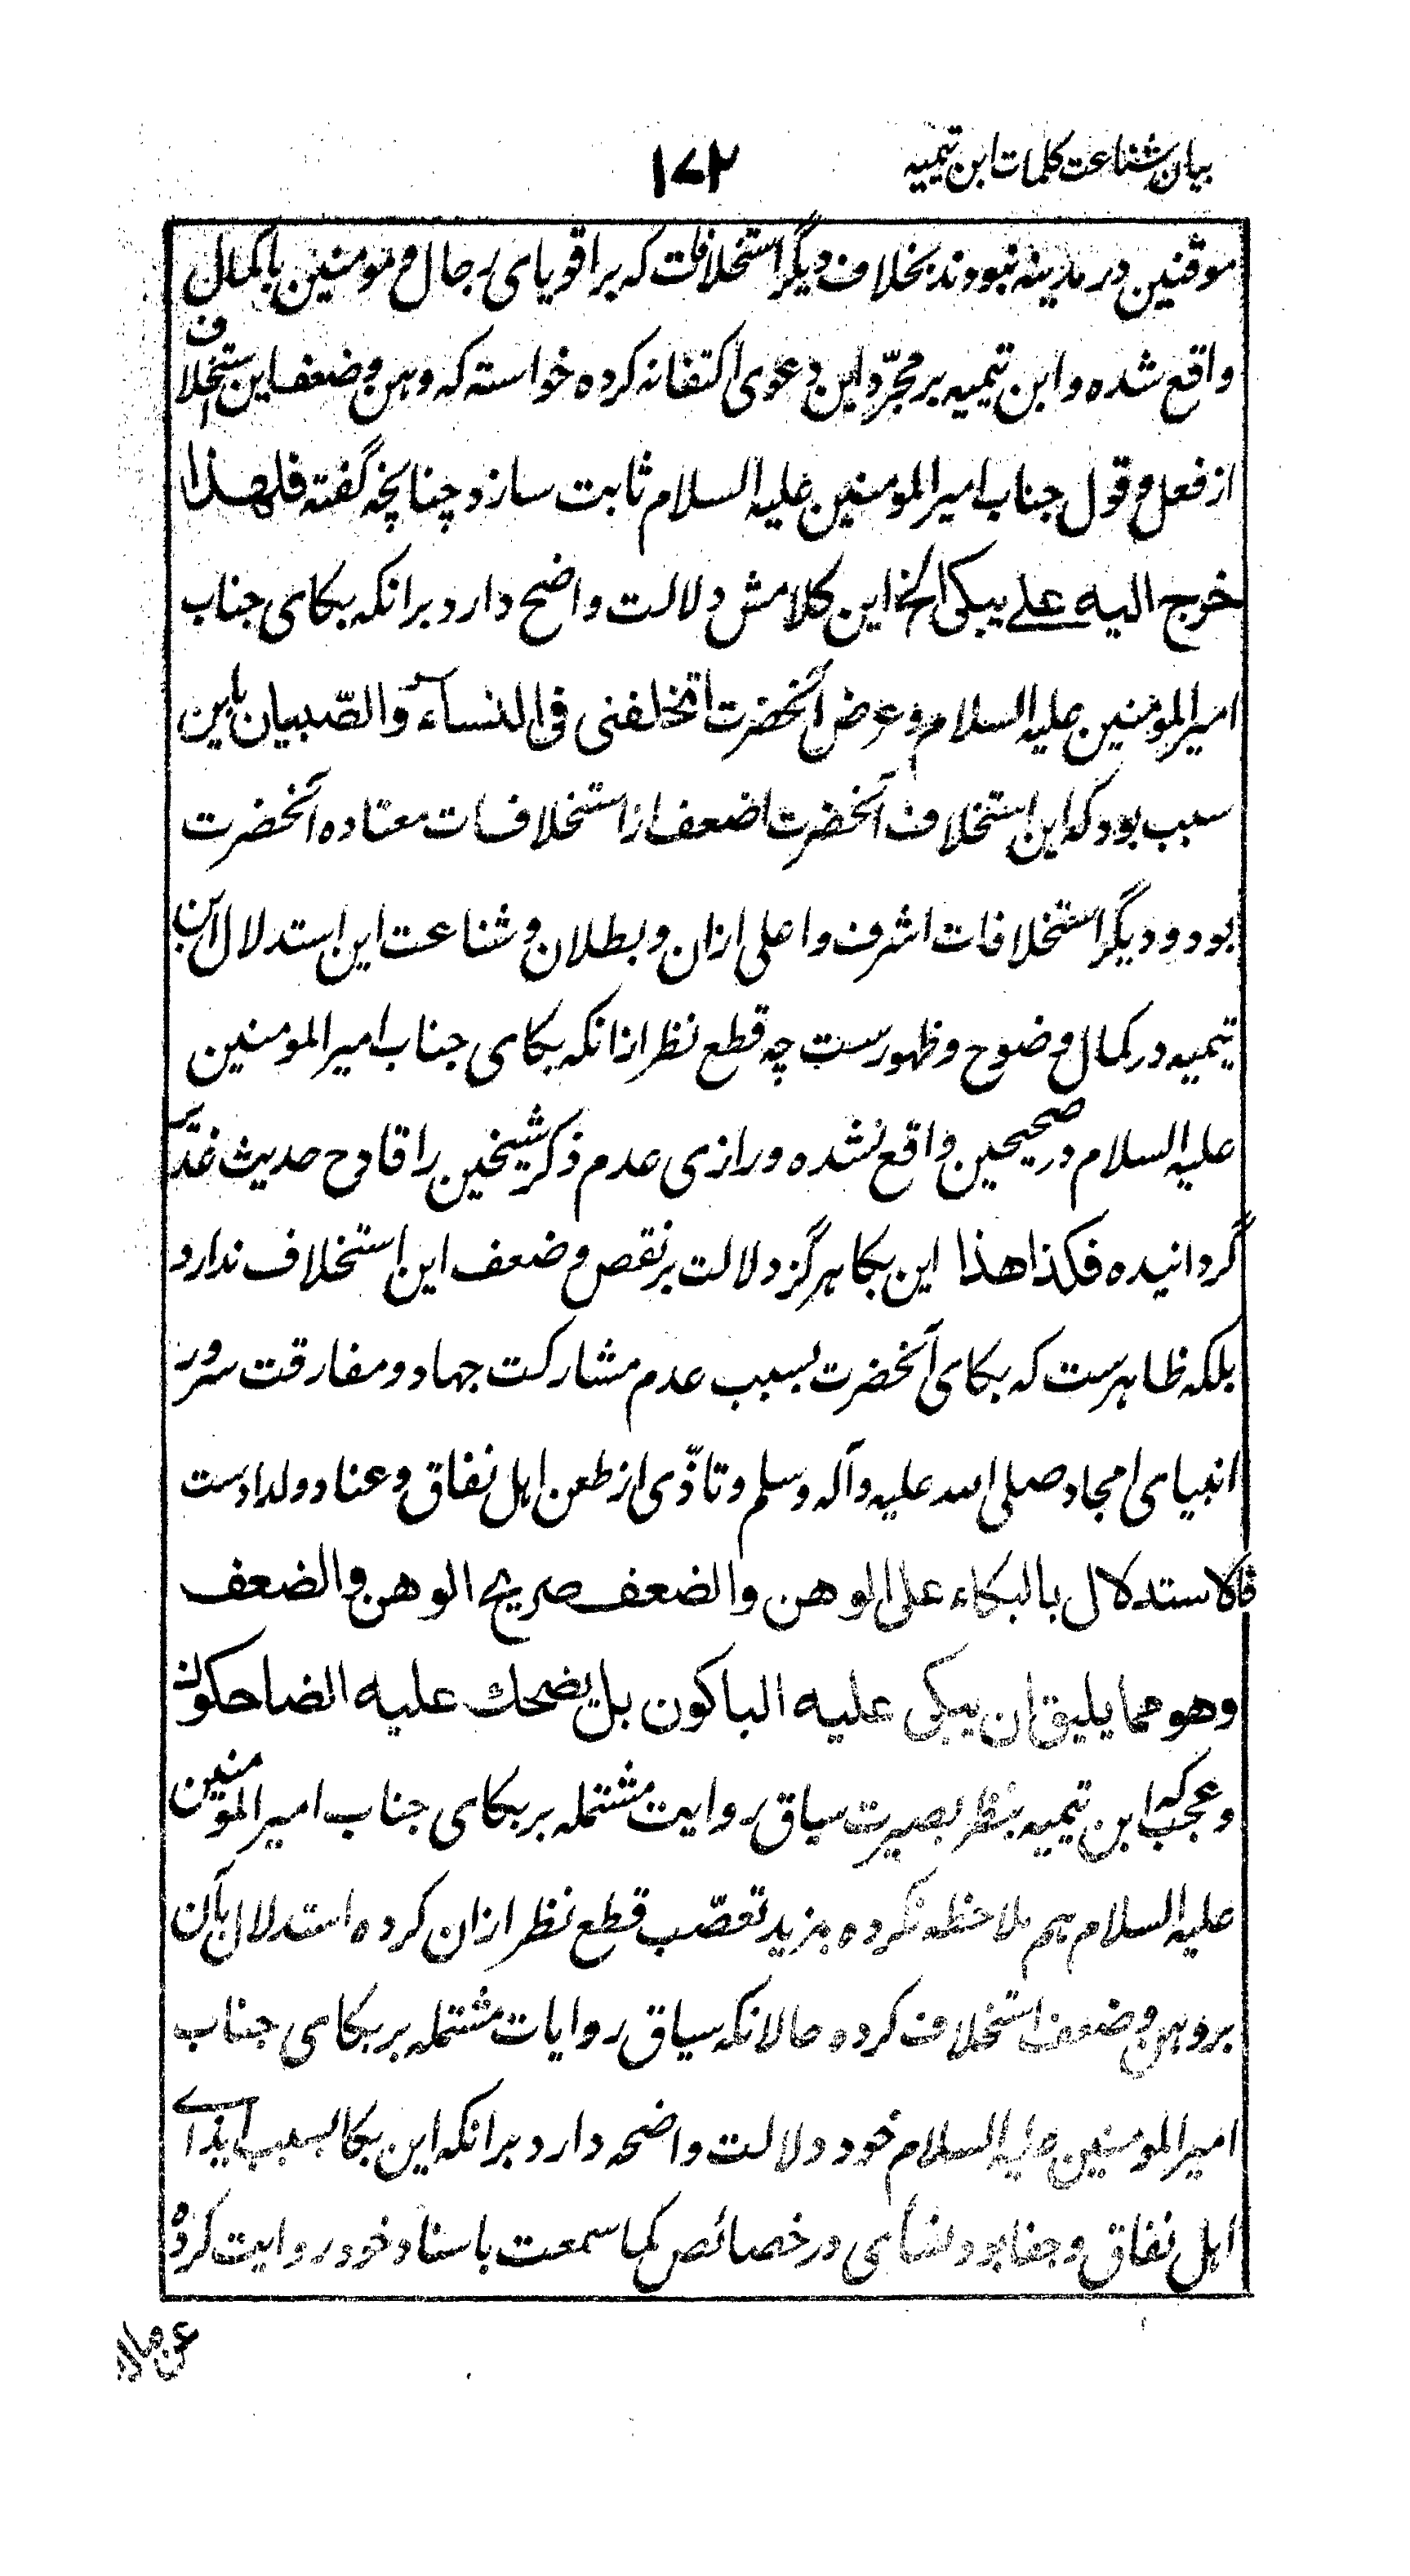 بیان شناعت کلمات ابن تیمیه
۱۷۲
موقنین در مدینه نبودند بخلاف دیگر استخلافات که بر اقویای رجال و مومنین باکمال
واقع شده و ابن تیمیه بر مجرّد این دعوی اکتفا نکرده خواسته که وهن و ضعف این استخلاف
از فعل و قول جناب امیرالمومنین علیه السلام ثابت سازد چنانچه گفته فلهذا
خرج الیه علے یبکی الخ این کلامش دلالت واضح دارد برانکه بکای جناب
امیرالمومنین علیه السلام و عرض آنحضرت اتخلفنی فی النساء والصّبیان باین
سبب بود که این استخلاف آنحضرت اضعف از استخلافات معتاده آنحضرت
بود و دیگر استخلافات اشرف و اعلی ازان و بطلان و شناعت این استدلال ابن
تیمیه در کمال وضوح و ظهورست چه قطع نظر ازانکه بکای جناب امیرالمومنین
علیه السلام در صحیحین واقع نشده و رازی عدم ذکر شیخین را قادح حدیث غدیر
گردانیده فکذا هذا این بکا هرگز دلالت بر نقص و ضعف این استخلاف ندارد
بلکه ظاهرست که بکای آنحضرت بسبب عدم مشارکت جهاد و مفارقت سرور
انبیای امجاد صلی الله علیه وآله وسلم و تاذّی از طعن اهل نفاق و عناد ولدادست
فالاستدلال بالبکاء علی الوهن والضعف صریح الوهن والضعف
وهو مما یلیق ان یبکی علیه الباکون بل یضحك علیه الضاحکون
و عجب که ابن تیمیه بنظر بصیرت سیاق روایت مشتمله بر بکای جناب امیرالمومنین
علیه السلام هم ملاحظه نکرده بمزید تعصّب قطع نظر ازان کرده استدلال بآن
بر وهن و ضعف استخلاف کرده حالانکه سیاق روایات مشتمله بر بکای جناب
امیرالمومنین علیه السلام خود دلالت واضحه دارد برانکه این بکا بسبب ایذاے
اهل نفاق و جفا بود نسأی در خصائص کما سمعت باسناد خود روایت کرده